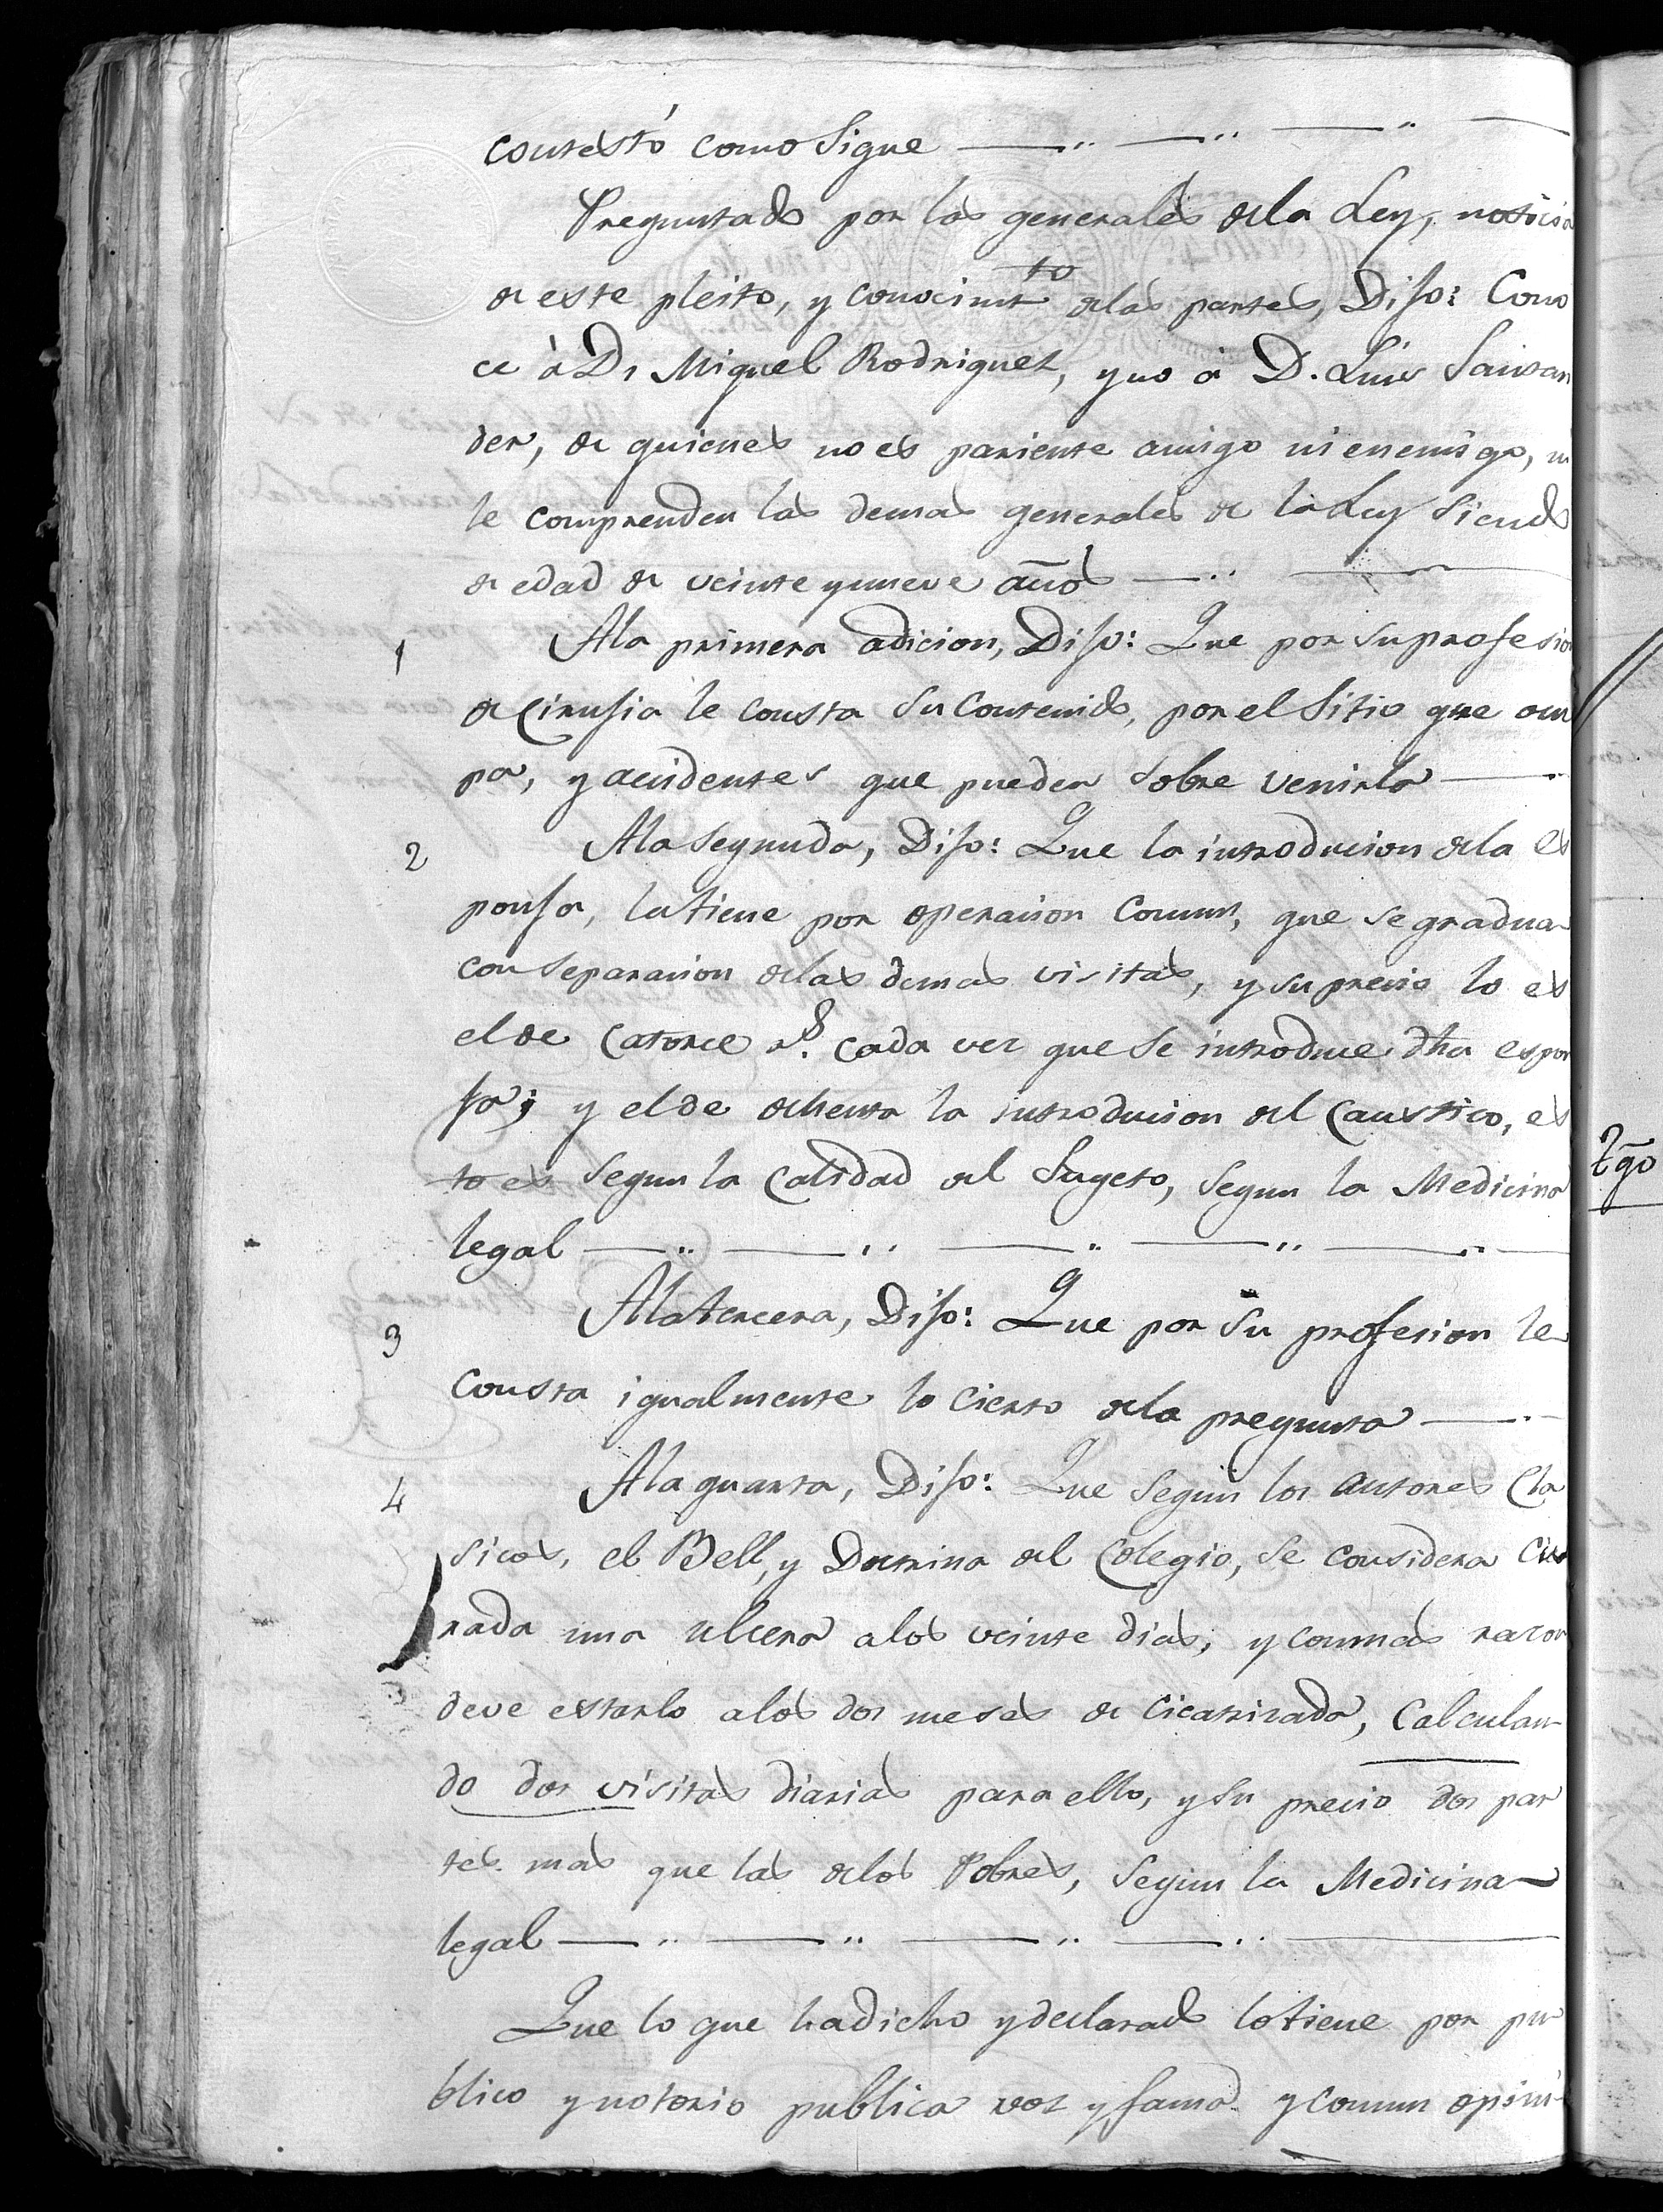 contestó como Sigue
Preguntado por las generales dela Ley, noticia
de este pleito, y conocimto delas partes, Dijo: Cono
ce à Dn Miguel Rodriguez, y no à D. Luis Santan
der, de quienes no es pariente amigo ni enemigo, ni
le comprenden las demas generales de la Ley siendo
de edad de veinte y nueve años
1 Ala primera adicion, Dijo: Que por su profesion
de Cirujia le consta su contenido, por el Sitio que ocu
pa, y accidentes que pueden sobre venirla
2 Ala segunda, Dijo: Que la introducion dela es
ponja, la tiene por operacion comun, que se gradua
con separacion delas demas visitas, y su precio lo es
el de catorce rs. cada vez que se introduce dha espon
ja; y el de ochenta la introducion del Caustico, es
to es segun la calidad del Sugeto, segun la Medicina
legal
3 Ala tercera, Dijo: Que por su profesion le
consta igualmente lo cierto dela pregunta
4 Ala quarta, Dijo: Que segun los autores Cla
sicos, el Bell, y Doctrina del Colegio, se considera cu
rada una ulcera alos veinte dias; y con mas razon
deve estarlo alos dos meses de cicatrizada, Calculan
do dos visitas diarias para ello, y su precio dos par
tes mas que las delos Pobres, segun la Medicina
legal
Que lo que ha dicho y declarado lo tiene por pu
blico y notorio publica voz y fama y comun opini
tgo